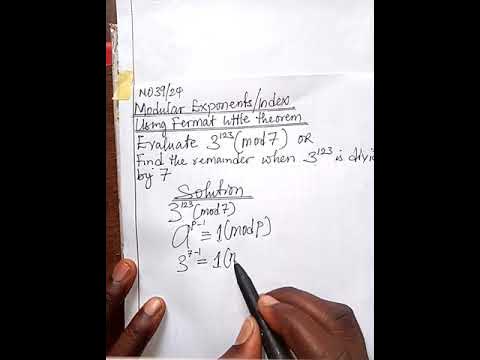 NO39/24
Modular Exponents/Index
Using Fermat little theorem
Evaluate 3¹²³(mod7) OR
Find the remainder when 3¹²³ is divi
by 7
Solution
3¹²³(mod7)
a^{p-1} ≡ 1(modp)
3^{7-1} ≡ 1(